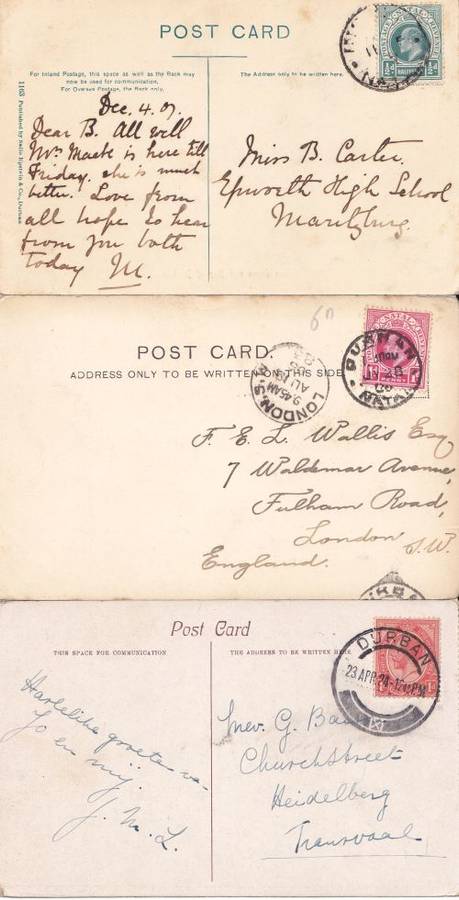 POST CARD
For Inland Postage, this space as well as the Back may
now be used for communication.
For Oversea Postage, the Back only.
The Address only to be written here.
1163 Published by Sallo Epstein & Co., Durban
Dec. 4. 07.
Dear B. All well
Mrs Mack is here till
Friday. she is much
better. Love from
all hope to hear
from you both
today M.
Miss B. Carter.
Epworth High School
Maritzburg.
POST CARD.
ADDRESS ONLY TO BE WRITTEN ON THIS SIDE.
LONDON, S.W.
9.45AM
DURBAN
NATAL
F. E. L. Wallis Esq
7 Waldemar Avenue,
Fulham Road,
London S.W.
England.
Post Card
THIS SPACE FOR COMMUNICATION
THE ADDRESS TO BE WRITTEN HERE
DURBAN
23 APR 24
Hartelike groete va-
Jo en mij.
J. M. L.
Mev. G.
Church Street
Heidelberg
Transvaal